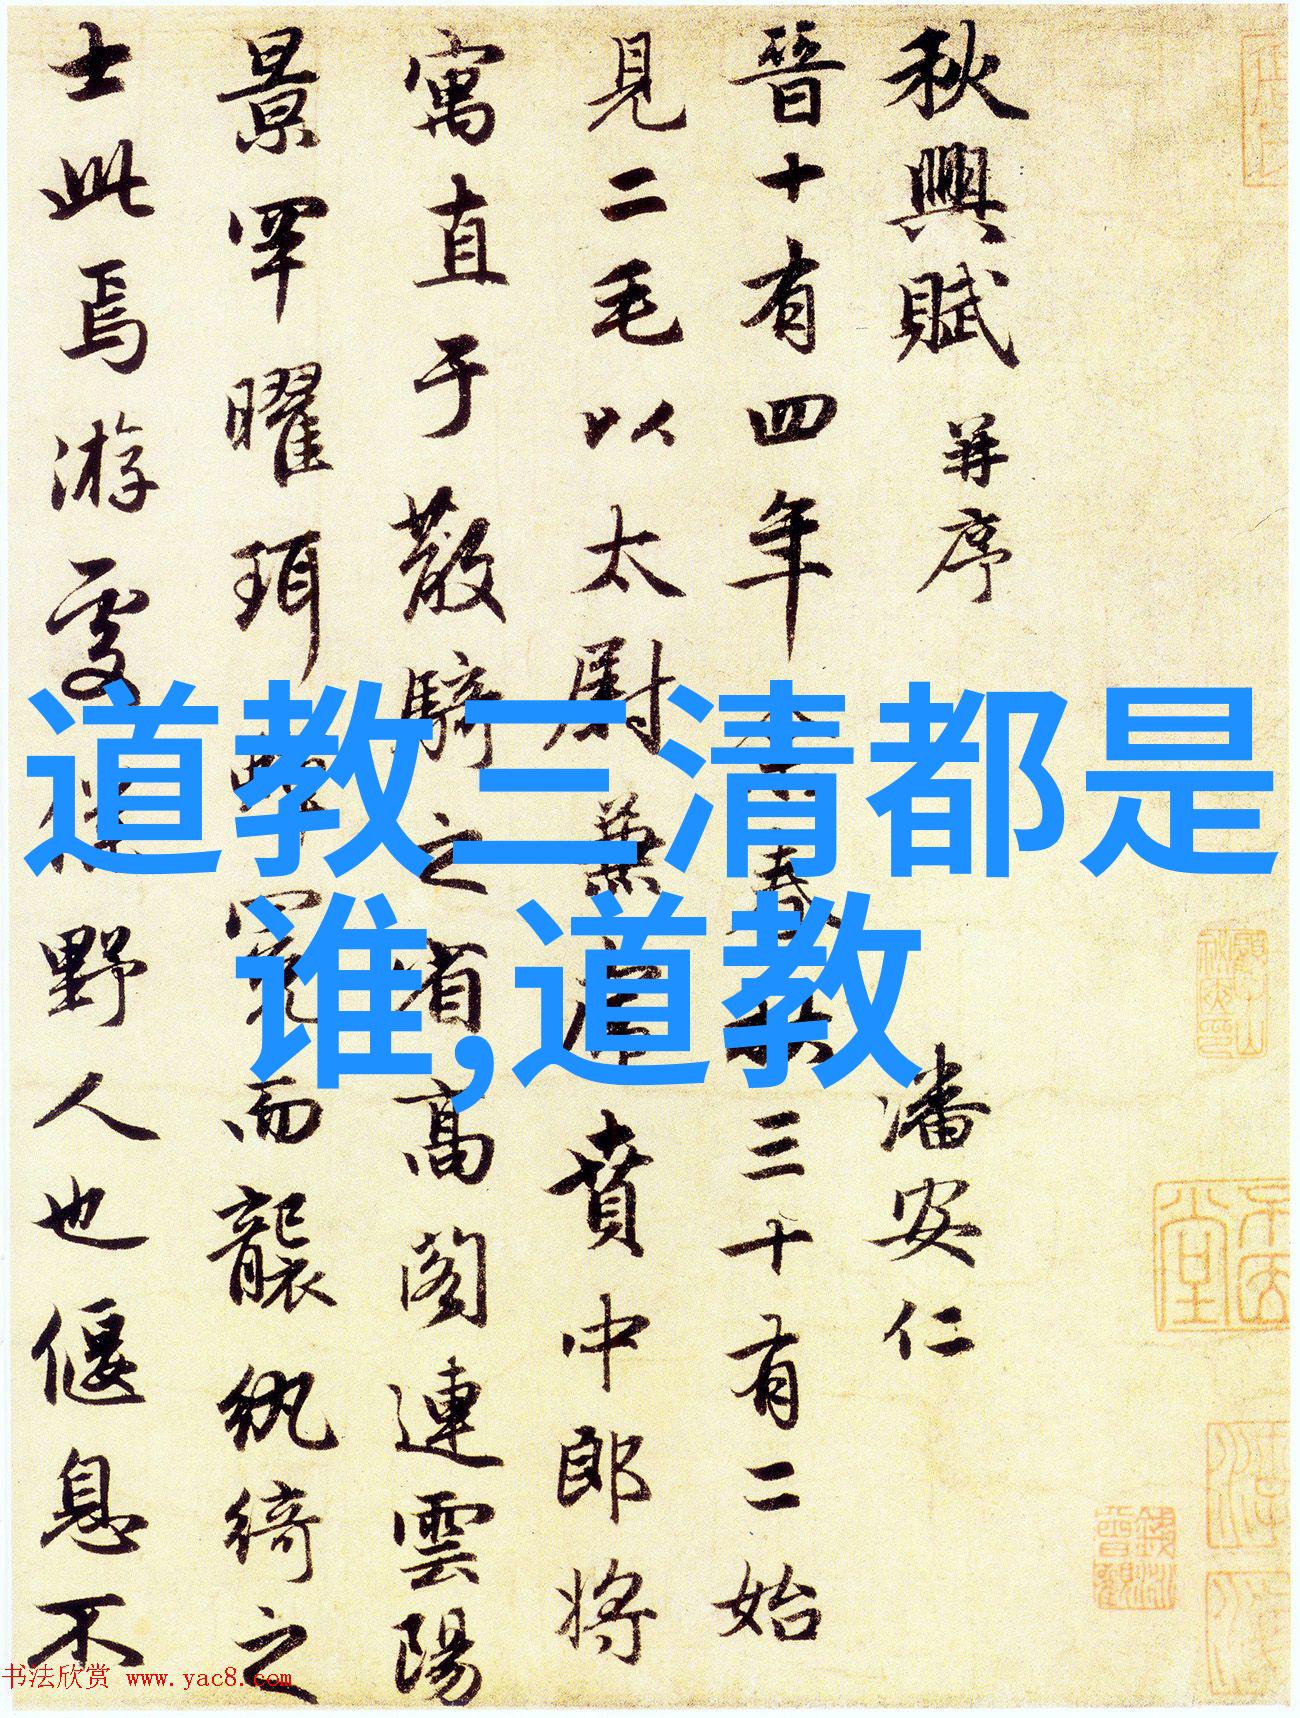 秋興賦 并序
潘安仁
晉十有四年 余春秋三十有二始
見二毛以太尉兼虎賁中郎將
寓直于散騎之省高閣連雲陽
景罕曜珥蟬冕而襲紈綺之
士此焉游處仆野人也偃息不
道教三清都是
谁,道教
书法欣赏 www.yac8.com